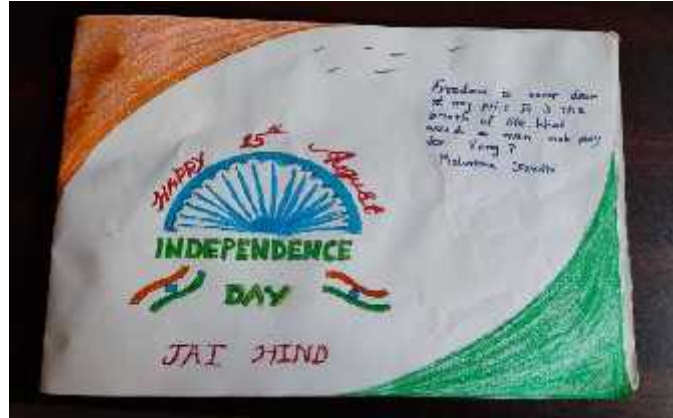 HAPPY 15th August
INDEPENDENCE
DAY
JAI HIND
Freedom is never dear
at any price. It is the
breath of life. What
would a man not pay
for living?
Mahatma Gandhi